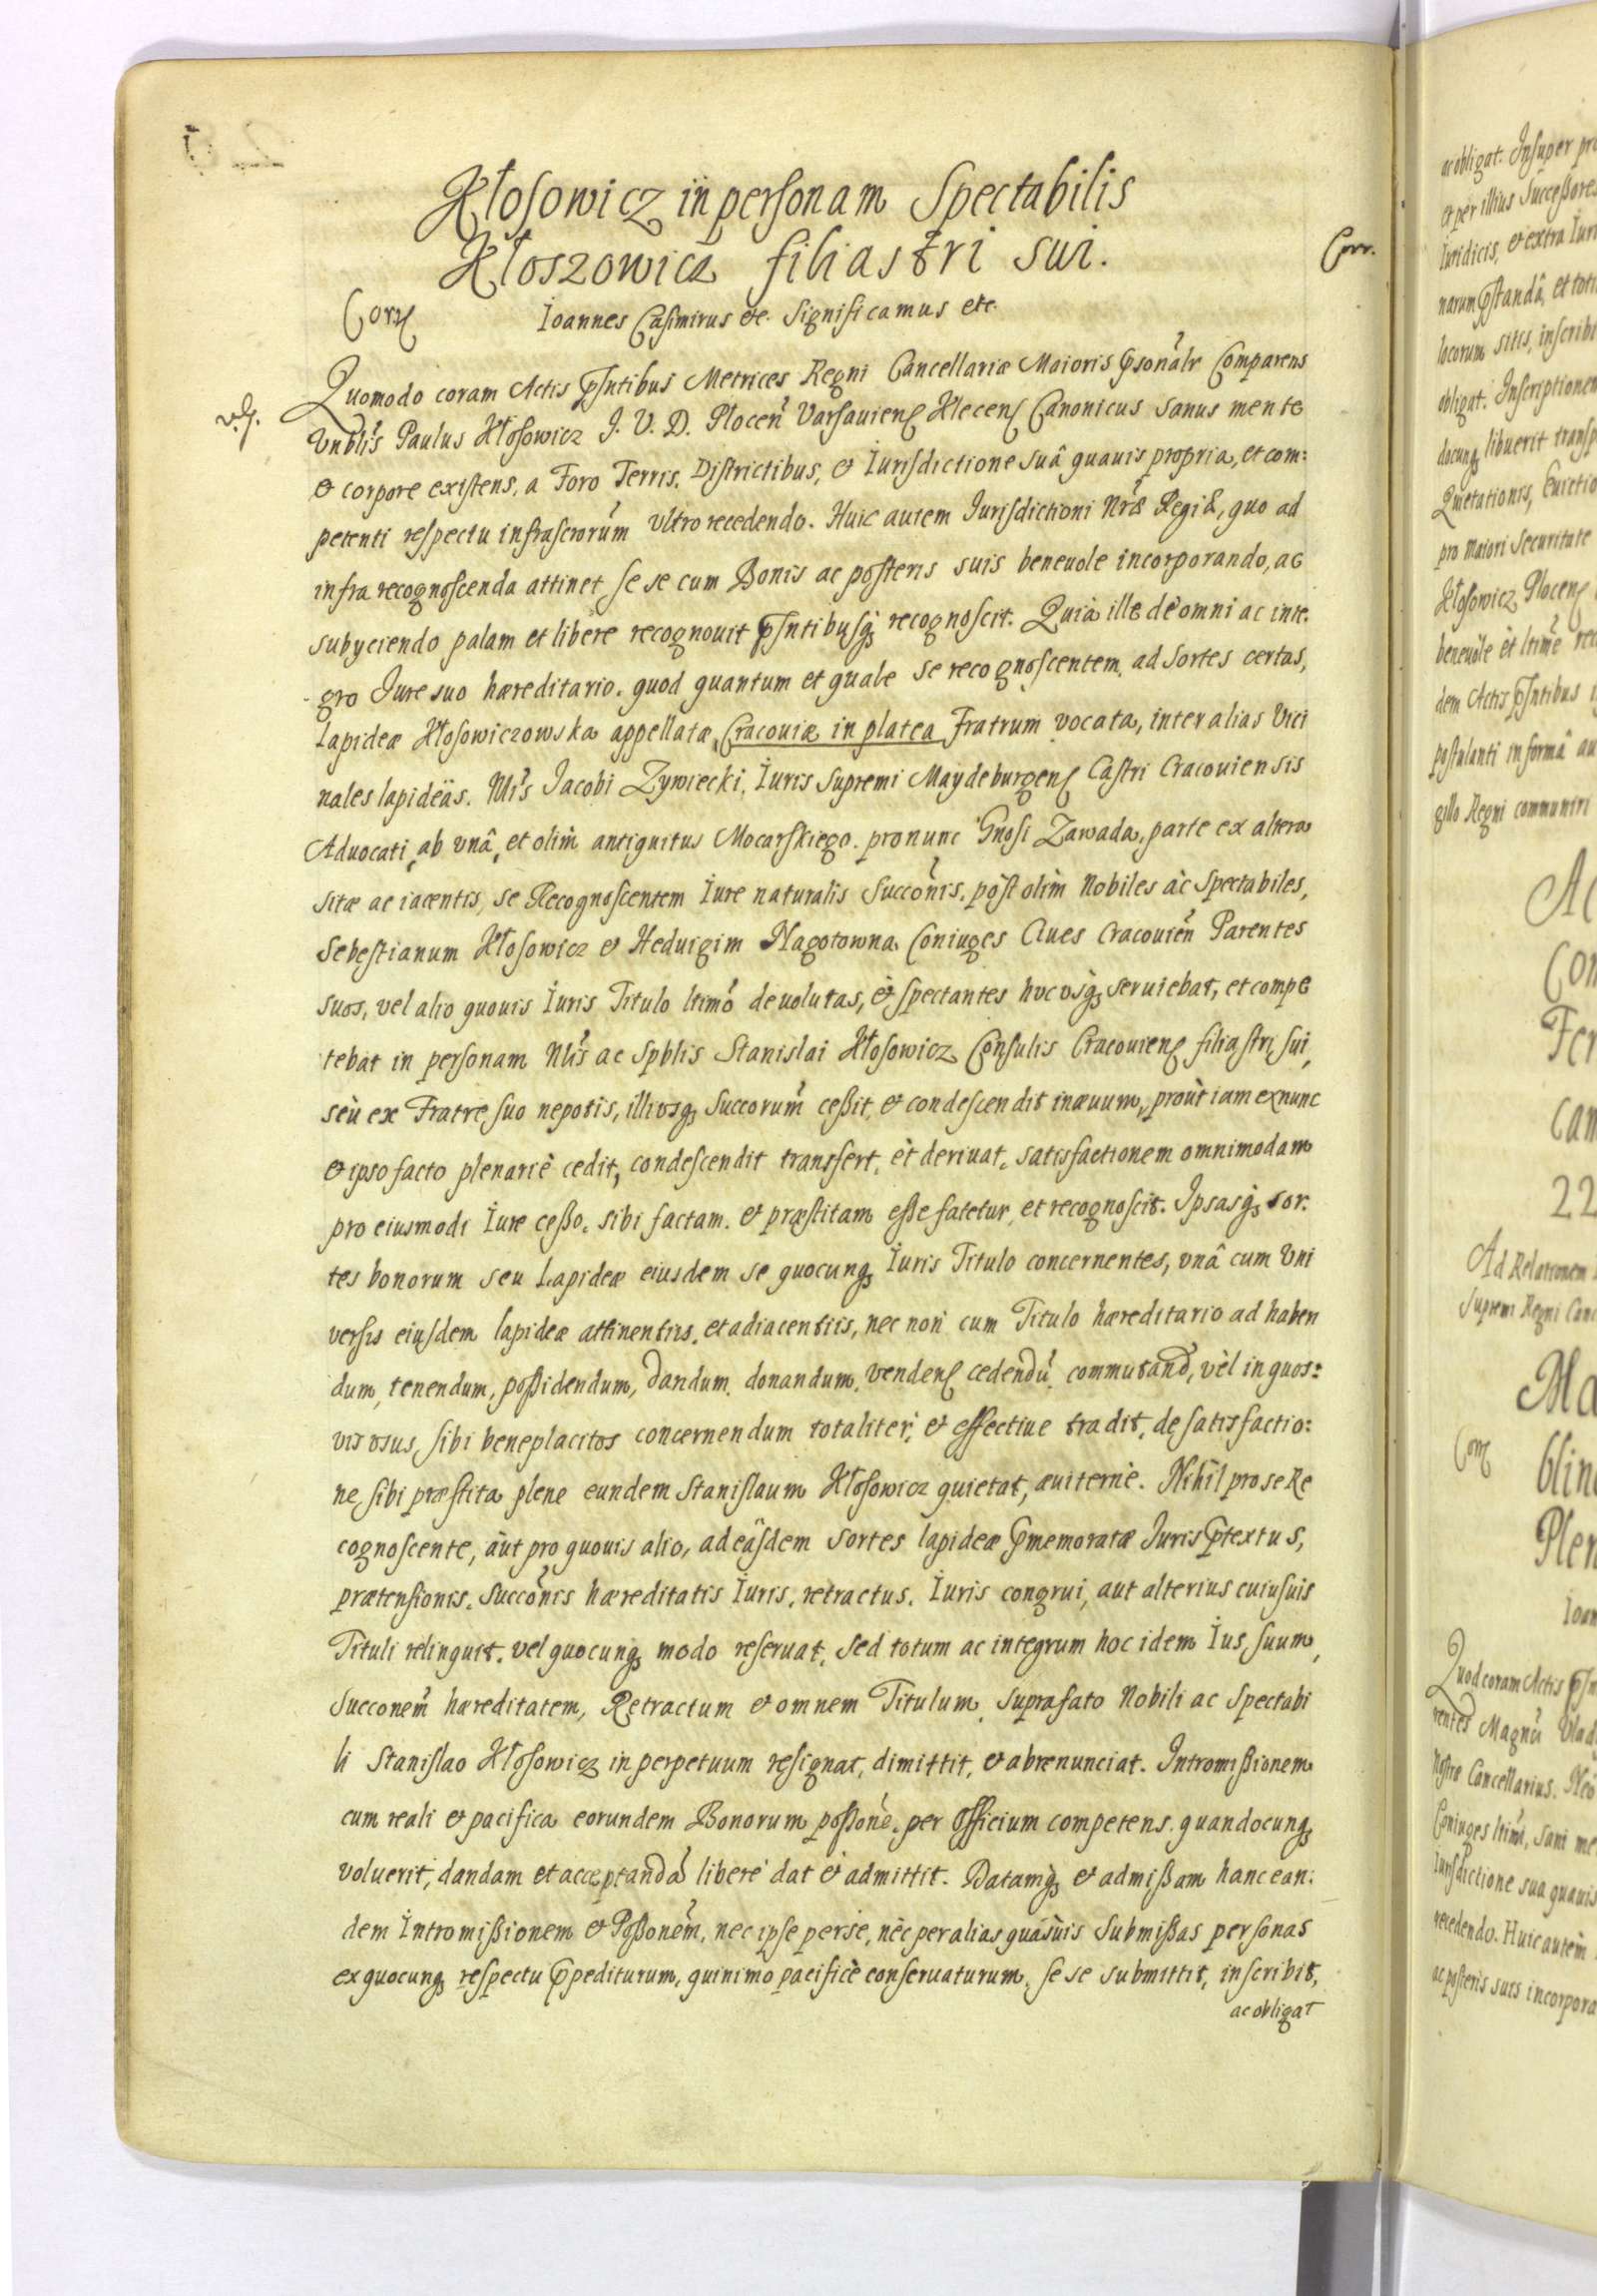 Kłosowicz in personam Spectabilis
Kłoszowicz filiastri sui.
Corr.
Corr
Ioannes Casimirus etc. Significamus etc.
Quomodo coram Actis pñtibus Metrices Regni Cancellariæ Maioris psonalr Comparens
Vnblis Paulus Kłosowicz J. V. D. Plocen Varsauien Klecen Canonicus sanus mente
et corpore existens, a Foro Terris, Districtibus, et Iurisdictione suâ quauis propria, et com:
petenti respectu infrascrorum vltro recedendo. Huic autem Jurisdictioni Nræ Regiæ, quo ad
infra recognoscenda attinet, se se cum Bonis ac posteris suis beneuole incorporando, ac
subyciendo palam et libere recognouit pñtibusq recognoscit. Quià ille dè omni ac inte.
gro Jure suo hæreditario. quod quantum et quale se recognoscentem, ad Sortes certas,
Lapideæ Kłosowiczowska appellatæ, Cracouiæ in platea Fratrum vocata, inter alias Vici
nales lapideas. Mis Jacobi Zywiecki, Iuris Supremi Maydeburgen Castri Cracouiensis
Aduocati, ab vnâ, et olim antiquitus Mocarskiego. pronunc Gnosi Zawada, parte ex altera
sitæ ac iacentis, se Recognoscentem Iure naturalis Succonis, pòst olim Nobiles àc Spectabiles,
Sebestianum Kłosowicz et Heduigim Nagotowna Coniuges Ciues Cracouien Parentes
suos, vel alio quouis Iuris Titulo ltimo deuolutas, èt spectantes hvcvsq seruiebat, et compe
tebat in personam Nlis ac Spblis Stanislai Kłosowicz Consulis Cracouien filiastri sui,
seù ex Fratre suo nepotis, illivsq Succorum ceßit, et condescendit inæuum, proùt iam exnunc
et ipso facto plenariè cedit, condescendit transfert, èt deriuat, satisfactionem omnimodam
pro eiusmodi Iure ceßo, sibi factam. et præstitam eße fatetur, et recognoscit. Ipsasq sor.
tes bonorum seu Lapideæ eiusdem se quocunq Iuris Titulo concernentes, vnâ cum Vni
versis eiusdem lapideæ attinentiis, et adiacentiis, nec non cum Titulo hæreditario ad haben
dum, tenendum, poßidendum, dandum, donandum, venden cedendu, commutand, vèl in quos:
vis vsus, sibi beneplacitos concernendum totaliter, et effectiue tradit, de satisfactio:
ne, sibi præstita plene eundem Stanislaum Kłosowicz quietat, æuiternè. Nihil pro se Re
cognoscente, àut pro quouis alio, ad eàsdem Sortes lapideæ pmemoratæ Juris ptextus,
prætensionis, Succonis hæreditatis Iuris, retractus. Iuris congrui, aut alterius cuiusuis
Tituli relinquit. vel quocunq modo reseruat, Sed totum ac integrum hoc idem Ius, suum,
Succonem hæreditatem, Retractum et omnem Titulum, suprafato Nobili ac Spectabi
li Stanislao Kłosowicz in perpetuum resignat, dimittit, et abrenunciat. Intromißionem
cum reali et pacifica eorundem Bonorum poßone, per Officium competens, quandocunq
voluerit, dandam et acceptanda liberè dat et admittit. Datamq et admißam hanc ean:
dem Intromißionem et Poßonem, nec ipse per se, nèc per alias quásuis Submißas personas
ex quocunq respectu ppediturum, quinimo pacificè conseruaturum, se se submittit, inscribit,
ac obligat
ac obligat. Insuper
et per illius Succeßores
Iuridicis, et extra
narum pstandâ, et
locorum sitis, inscribi
obligat. Inscriptionem
docunq libuerit
Quietationis, Euictio
pro Maiori Securitate
Kłosowicz Plocen
beneuole èt ltime
dem Actis pñtibus
postulanti in formâ
gillo Regni communiri
22
Ad Relationem
Supremi Regni
Quod coram Actis
Magnu
Nostræ Cancellarius.
Coniuges ltimi, sani
Iurisdictione sua quauis
recedendo. Huic autem
ac posteris suis incorpora